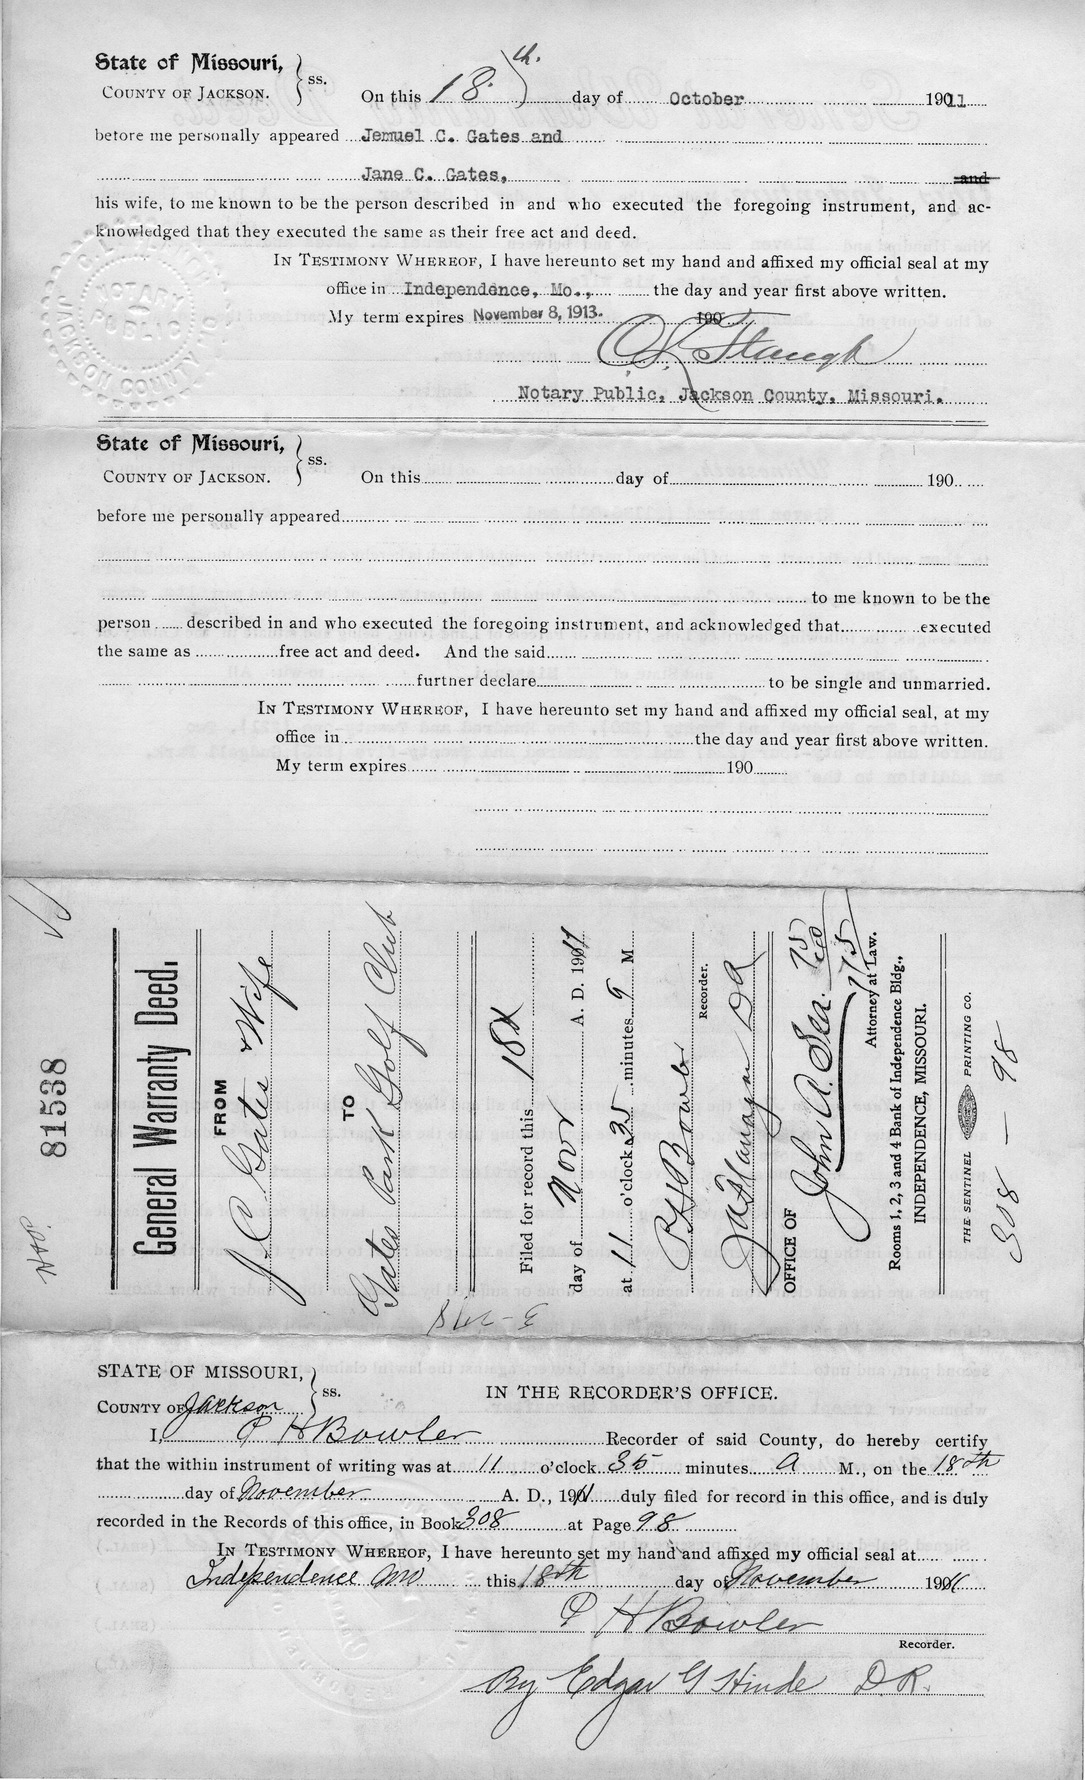 State of Missouri,
COUNTY OF JACKSON. } ss. On this 18th. day of October 1911
before me personally appeared Jemuel C. Gates and
Jane C. Gates, and
his wife, to me known to be the person described in and who executed the foregoing instrument, and ac-
knowledged that they executed the same as their free act and deed.
IN TESTIMONY WHEREOF, I have hereunto set my hand and affixed my official seal at my
office in Independence, Mo., the day and year first above written.
My term expires November 8, 1913. 190
Notary Public, Jackson County, Missouri.
NOTARY PUBLIC
JACKSON COUNTY
State of Missouri,
COUNTY OF JACKSON. } ss. On this day of 190
before me personally appeared
to me known to be the
person described in and who executed the foregoing instrument, and acknowledged that executed
the same as free act and deed. And the said
further declare to be single and unmarried.
IN TESTIMONY WHEREOF, I have hereunto set my hand and affixed my official seal, at my
office in the day and year first above written.
My term expires 190
81538
General Warranty Deed.
FROM
J C Gates & Wife
TO
Gates Park Golf Club
Filed for record this 18th
day of Novr A. D. 1911
at 11 o'clock 35 minutes a M
P H Bowler
Recorder.
OFFICE OF
John A. Sea
Attorney at Law.
Rooms 1, 2, 3 and 4 Bank of Independence Bldg.,
INDEPENDENCE, MISSOURI.
THE SENTINEL PRINTING CO.
308 — 98
STATE OF MISSOURI,
COUNTY OF Jackson } ss. IN THE RECORDER'S OFFICE.
I, P H Bowler Recorder of said County, do hereby certify
that the within instrument of writing was at 11 o'clock 35 minutes A M., on the 18th
day of November A. D., 1911 duly filed for record in this office, and is duly
recorded in the Records of this office, in Book 308 at Page 98
IN TESTIMONY WHEREOF, I have hereunto set my hand and affixed my official seal at
Independence Mo this 18th day of November 1911
P H Bowler
Recorder.
By Edgar G Hinde D.R.